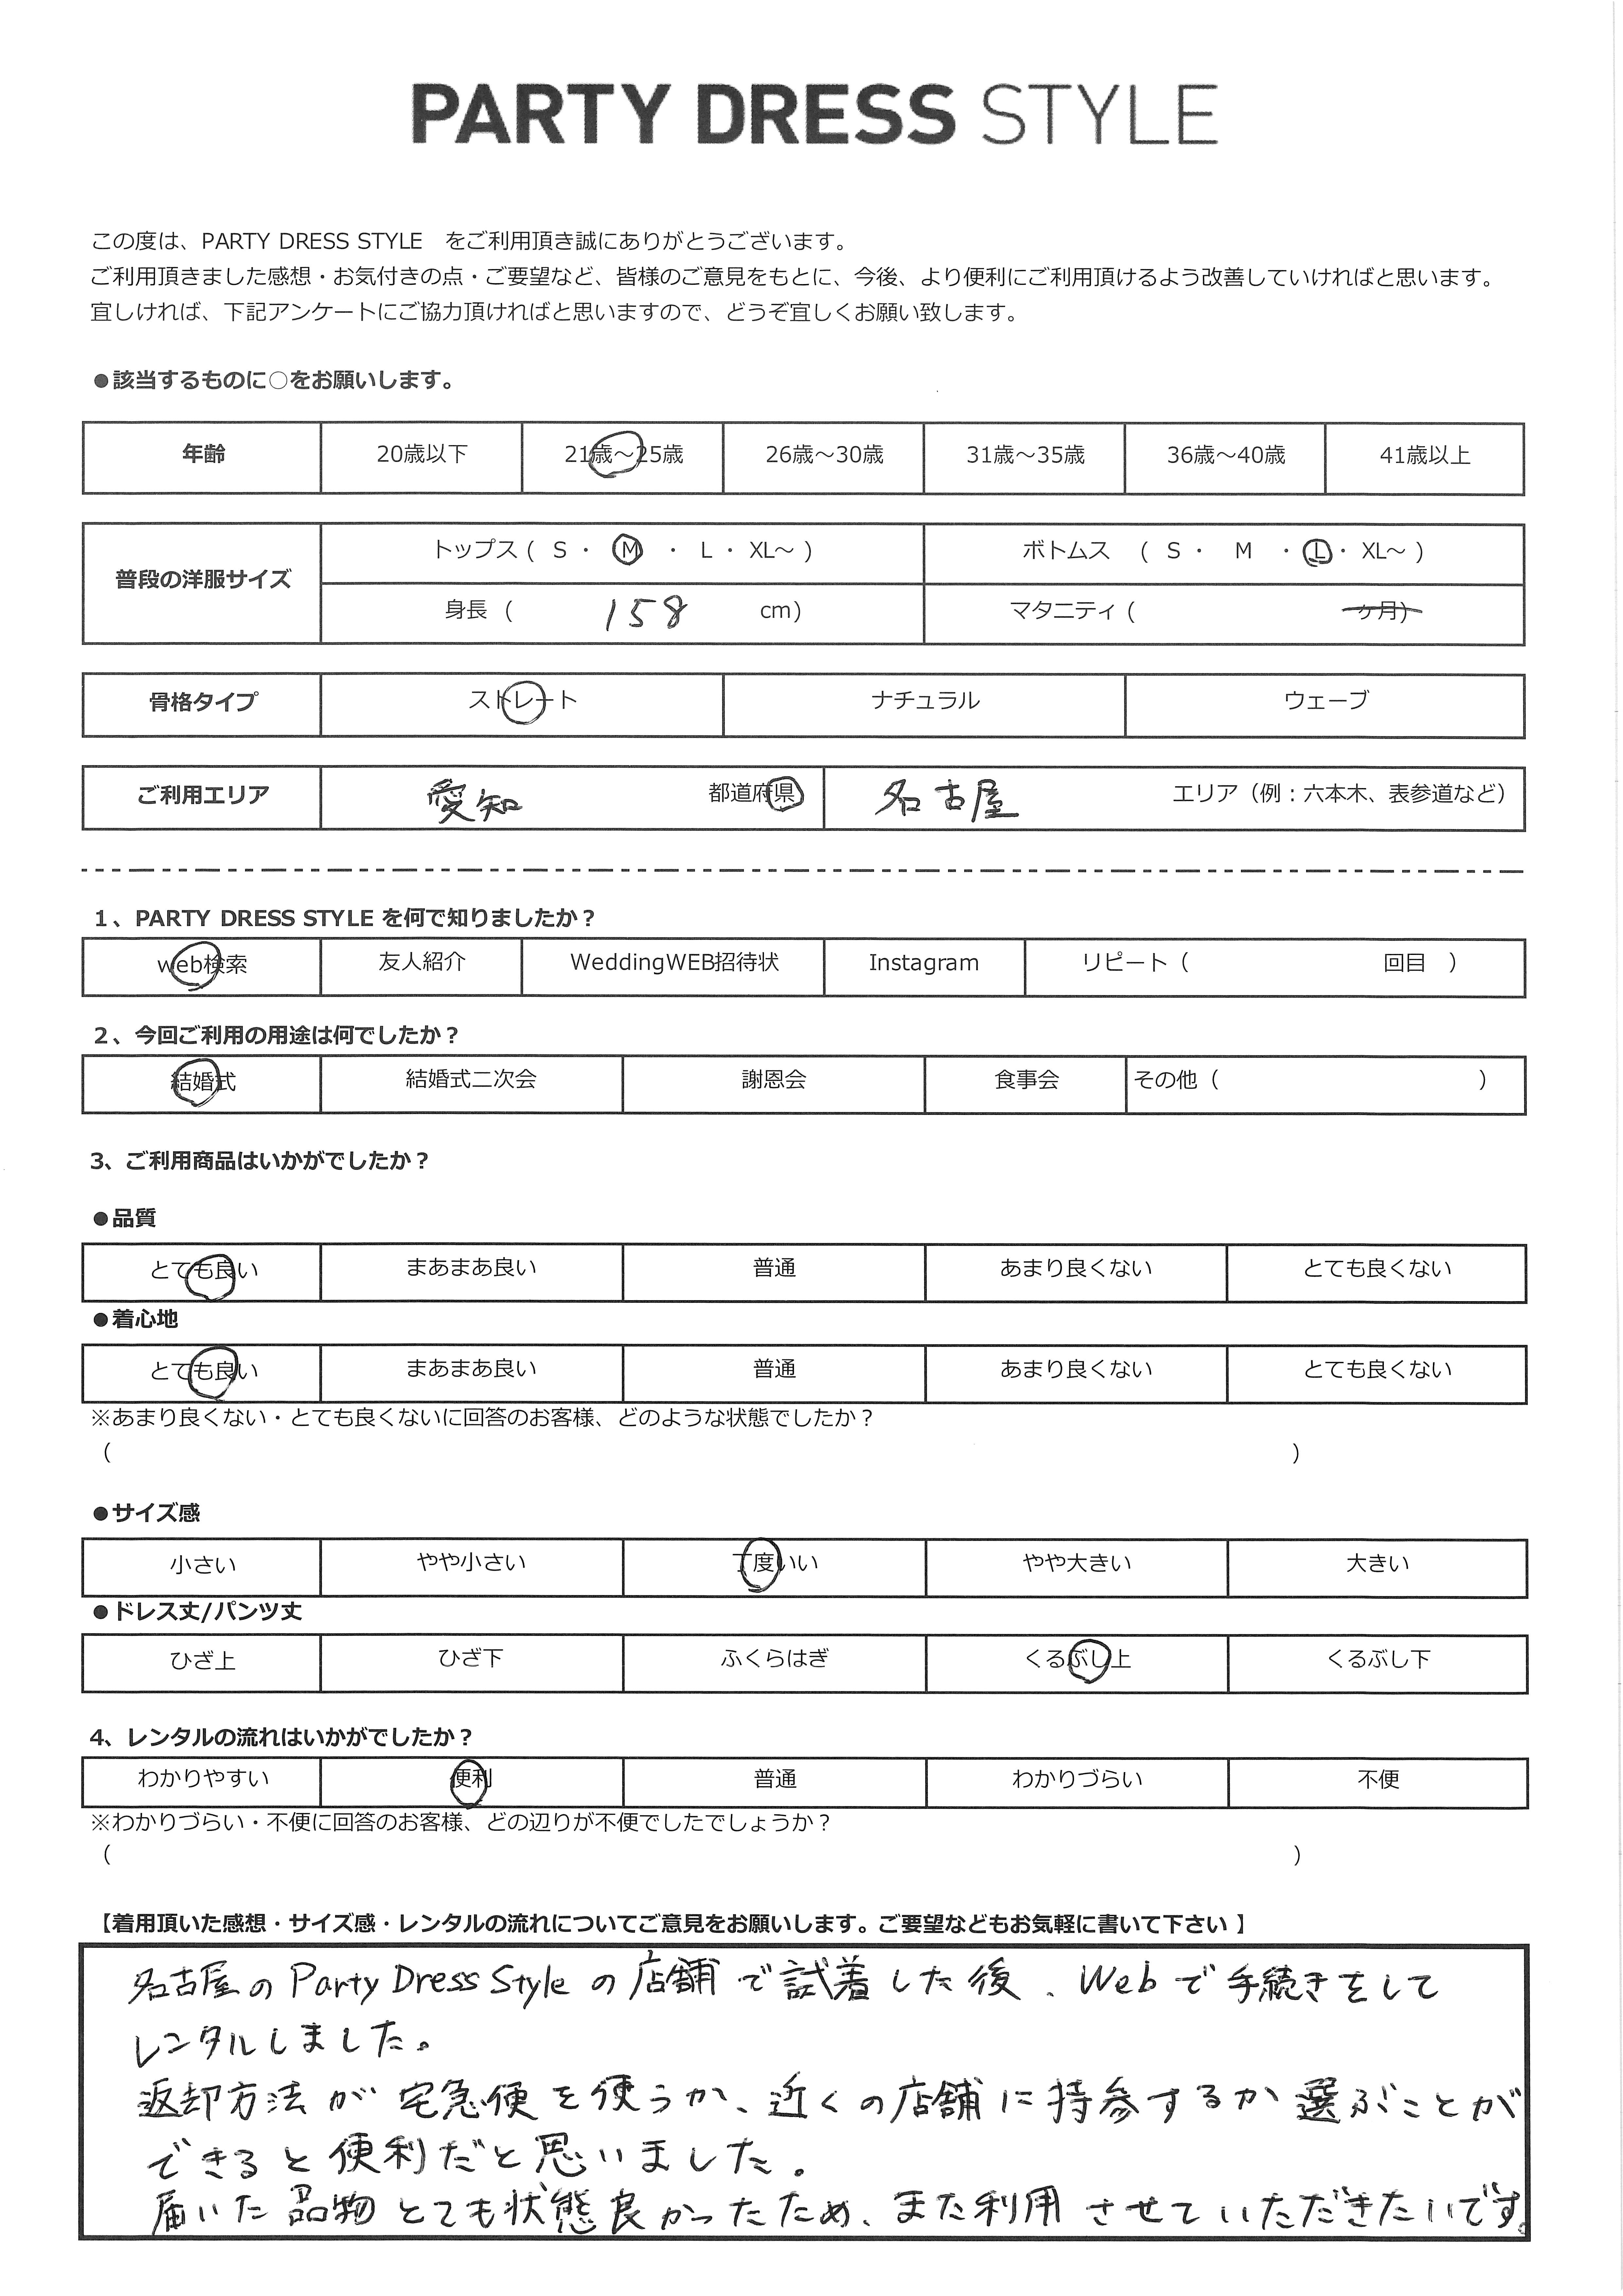 PARTY DRESS STYLE
この度は、PARTY DRESS STYLE　をご利用頂き誠にありがとうございます。
ご利用頂きました感想・お気付きの点・ご要望など、皆様のご意見をもとに、今後、より便利にご利用頂けるよう改善していければと思います。
宜しければ、下記アンケートにご協力頂ければと思いますので、どうぞ宜しくお願い致します。
●該当するものに○をお願いします。
年齢 20歳以下 21歳～25歳 26歳～30歳 31歳～35歳 36歳～40歳 41歳以上
普段の洋服サイズ
トップス ( S ・ M ・ L ・ XL～ ) ボトムス ( S ・ M ・ L ・ XL～ )
身長 ( 158 cm) マタニティ ( ヶ月)
骨格タイプ ストレート ナチュラル ウェーブ
ご利用エリア 愛知 都道府県 名古屋 エリア（例：六本木、表参道など）
1、PARTY DRESS STYLE を何で知りましたか？
web検索 友人紹介 WeddingWEB招待状 Instagram リピート（ 回目 ）
2、今回ご利用の用途は何でしたか？
結婚式 結婚式二次会 謝恩会 食事会 その他（ ）
3、ご利用商品はいかがでしたか？
●品質
とても良い まあまあ良い 普通 あまり良くない とても良くない
●着心地
とても良い まあまあ良い 普通 あまり良くない とても良くない
※あまり良くない・とても良くないに回答のお客様、どのような状態でしたか？
（ ）
●サイズ感
小さい やや小さい 丁度いい やや大きい 大きい
●ドレス丈/パンツ丈
ひざ上 ひざ下 ふくらはぎ くるぶし上 くるぶし下
4、レンタルの流れはいかがでしたか？
わかりやすい 便利 普通 わかりづらい 不便
※わかりづらい・不便に回答のお客様、どの辺りが不便でしたでしょうか？
（ ）
【着用頂いた感想・サイズ感・レンタルの流れについてご意見をお願いします。ご要望などもお気軽に書いて下さい 】
名古屋の Party Dress Style の店舗で試着した後、Webで手続きをして
レンタルしました。
返却方法が宅急便を使うか、近くの店舗に持参するか選ぶことが
できると便利だと思いました。
届いた品物とても状態良かったため、また利用させていただきたいです。